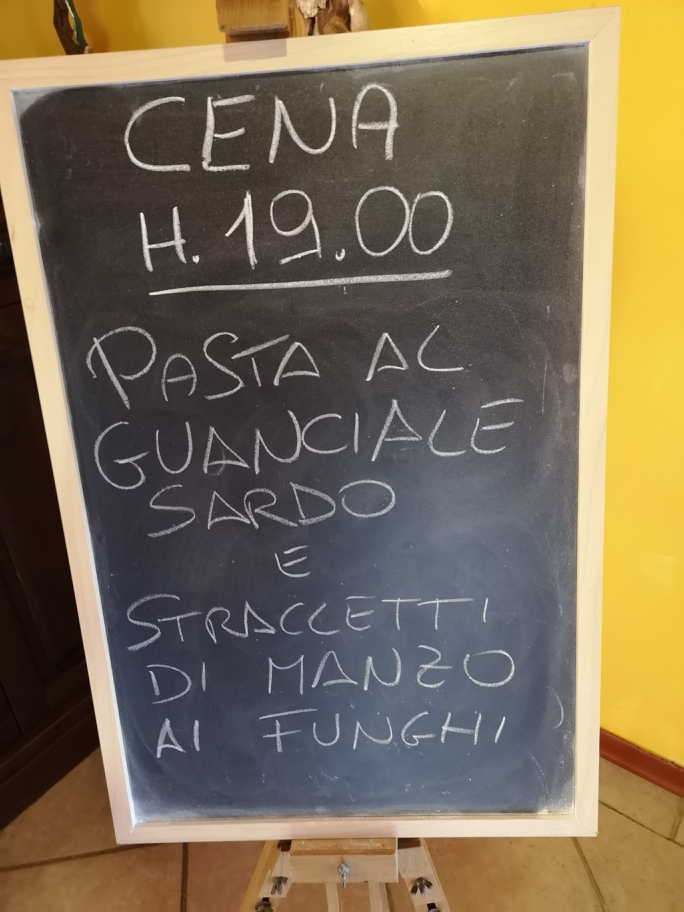 CENA
H. 19.00
PASTA AL
GUANCIALE
SARDO
E
STRACCETTI
DI MANZO
AI FUNGHI